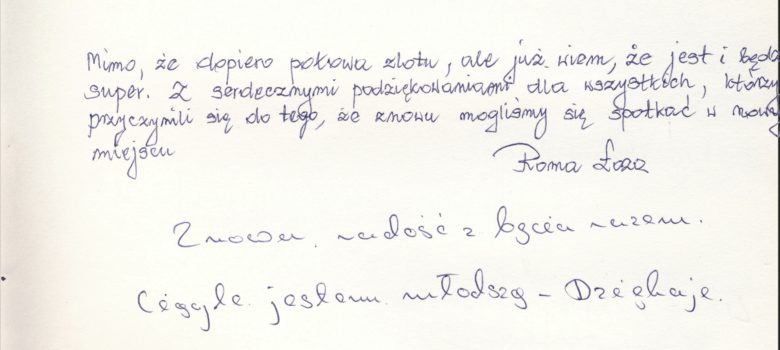 Mimo, że dopiero połowa zlotu, ale już wiem, że jest i będą
super. Z serdecznymi podziękowaniami dla wszystkich, którzy
przyczynili się do tego, że znowu mogliśmy się spotkać w nowy
miejscu
Roma Łoza
Znowu radość z bycia razem.
Ciągle jestem młodszą – Dziękuję.